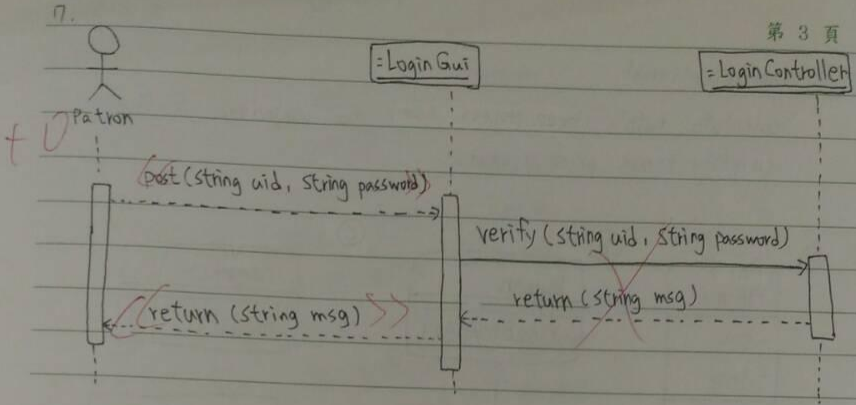 7.
第 3 頁
:LoginGui
:LoginController
Patron
+0
post(string uid, String password)
verify(string uid, string password)
return (string msg)
return (string msg)